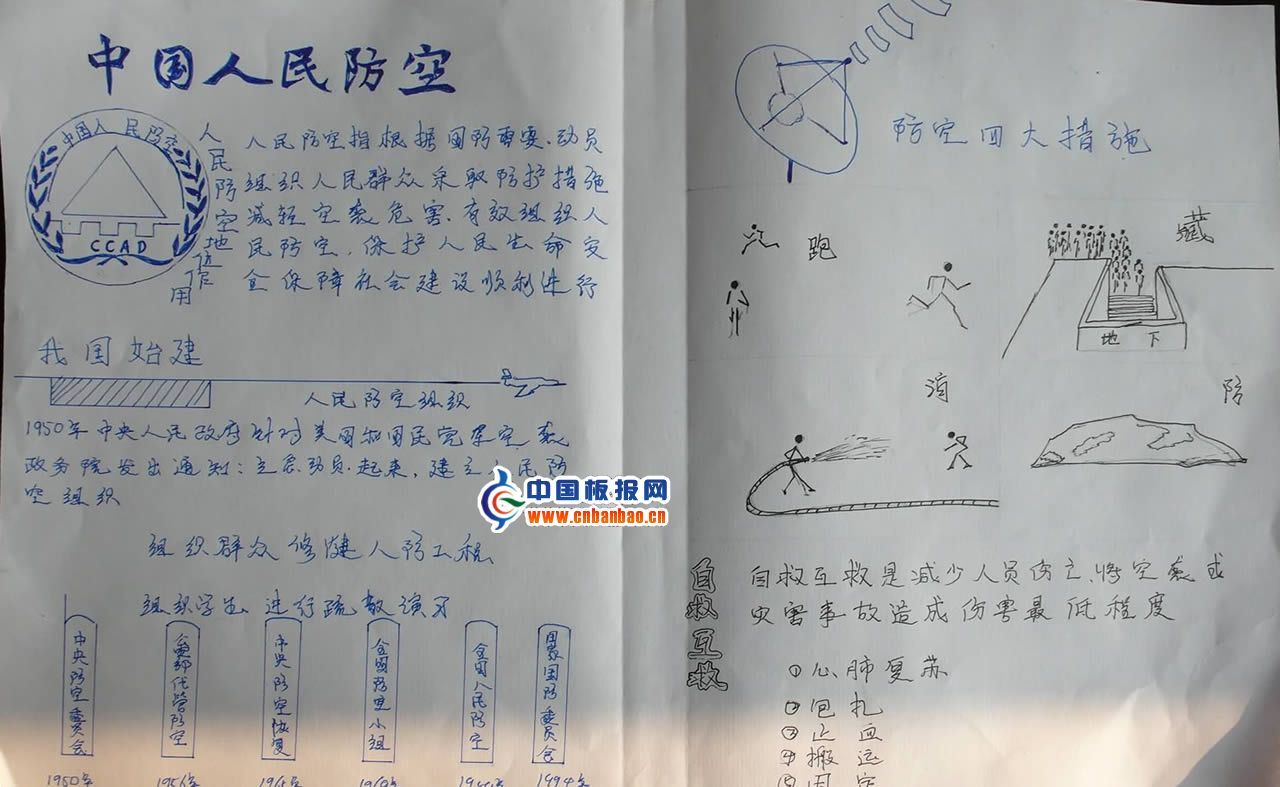 中国人民防空
中国人民防空
CCAD
人民防空地位作用
人民防空指根据国防需要、动员
组织人民群众采取防护措施
减轻空袭危害、有效组织人
民防空、保护人民生命安
全保障社会建设顺利进行
我国始建
人民防空组织
1950年中央人民政府针对美国和国民党军空袭
政务院发出通知：立急动员起来，建立人民防
空组织
组织群众修建人防工程
组织学生进行疏散演习
中央防空委员会
1950年
代管防空
中央防空恢复
全国防空小组
全国人民防空
国家国防委员会
1994年
中国板报网
www.cnbanbao.cn
防空四大措施
跑
藏
地下
消
防
自救互救
自救互救是减少人员伤亡、将空袭或
灾害事故造成伤害最低程度
①心肺复苏
②包扎
③止血
④搬运
⑤固定